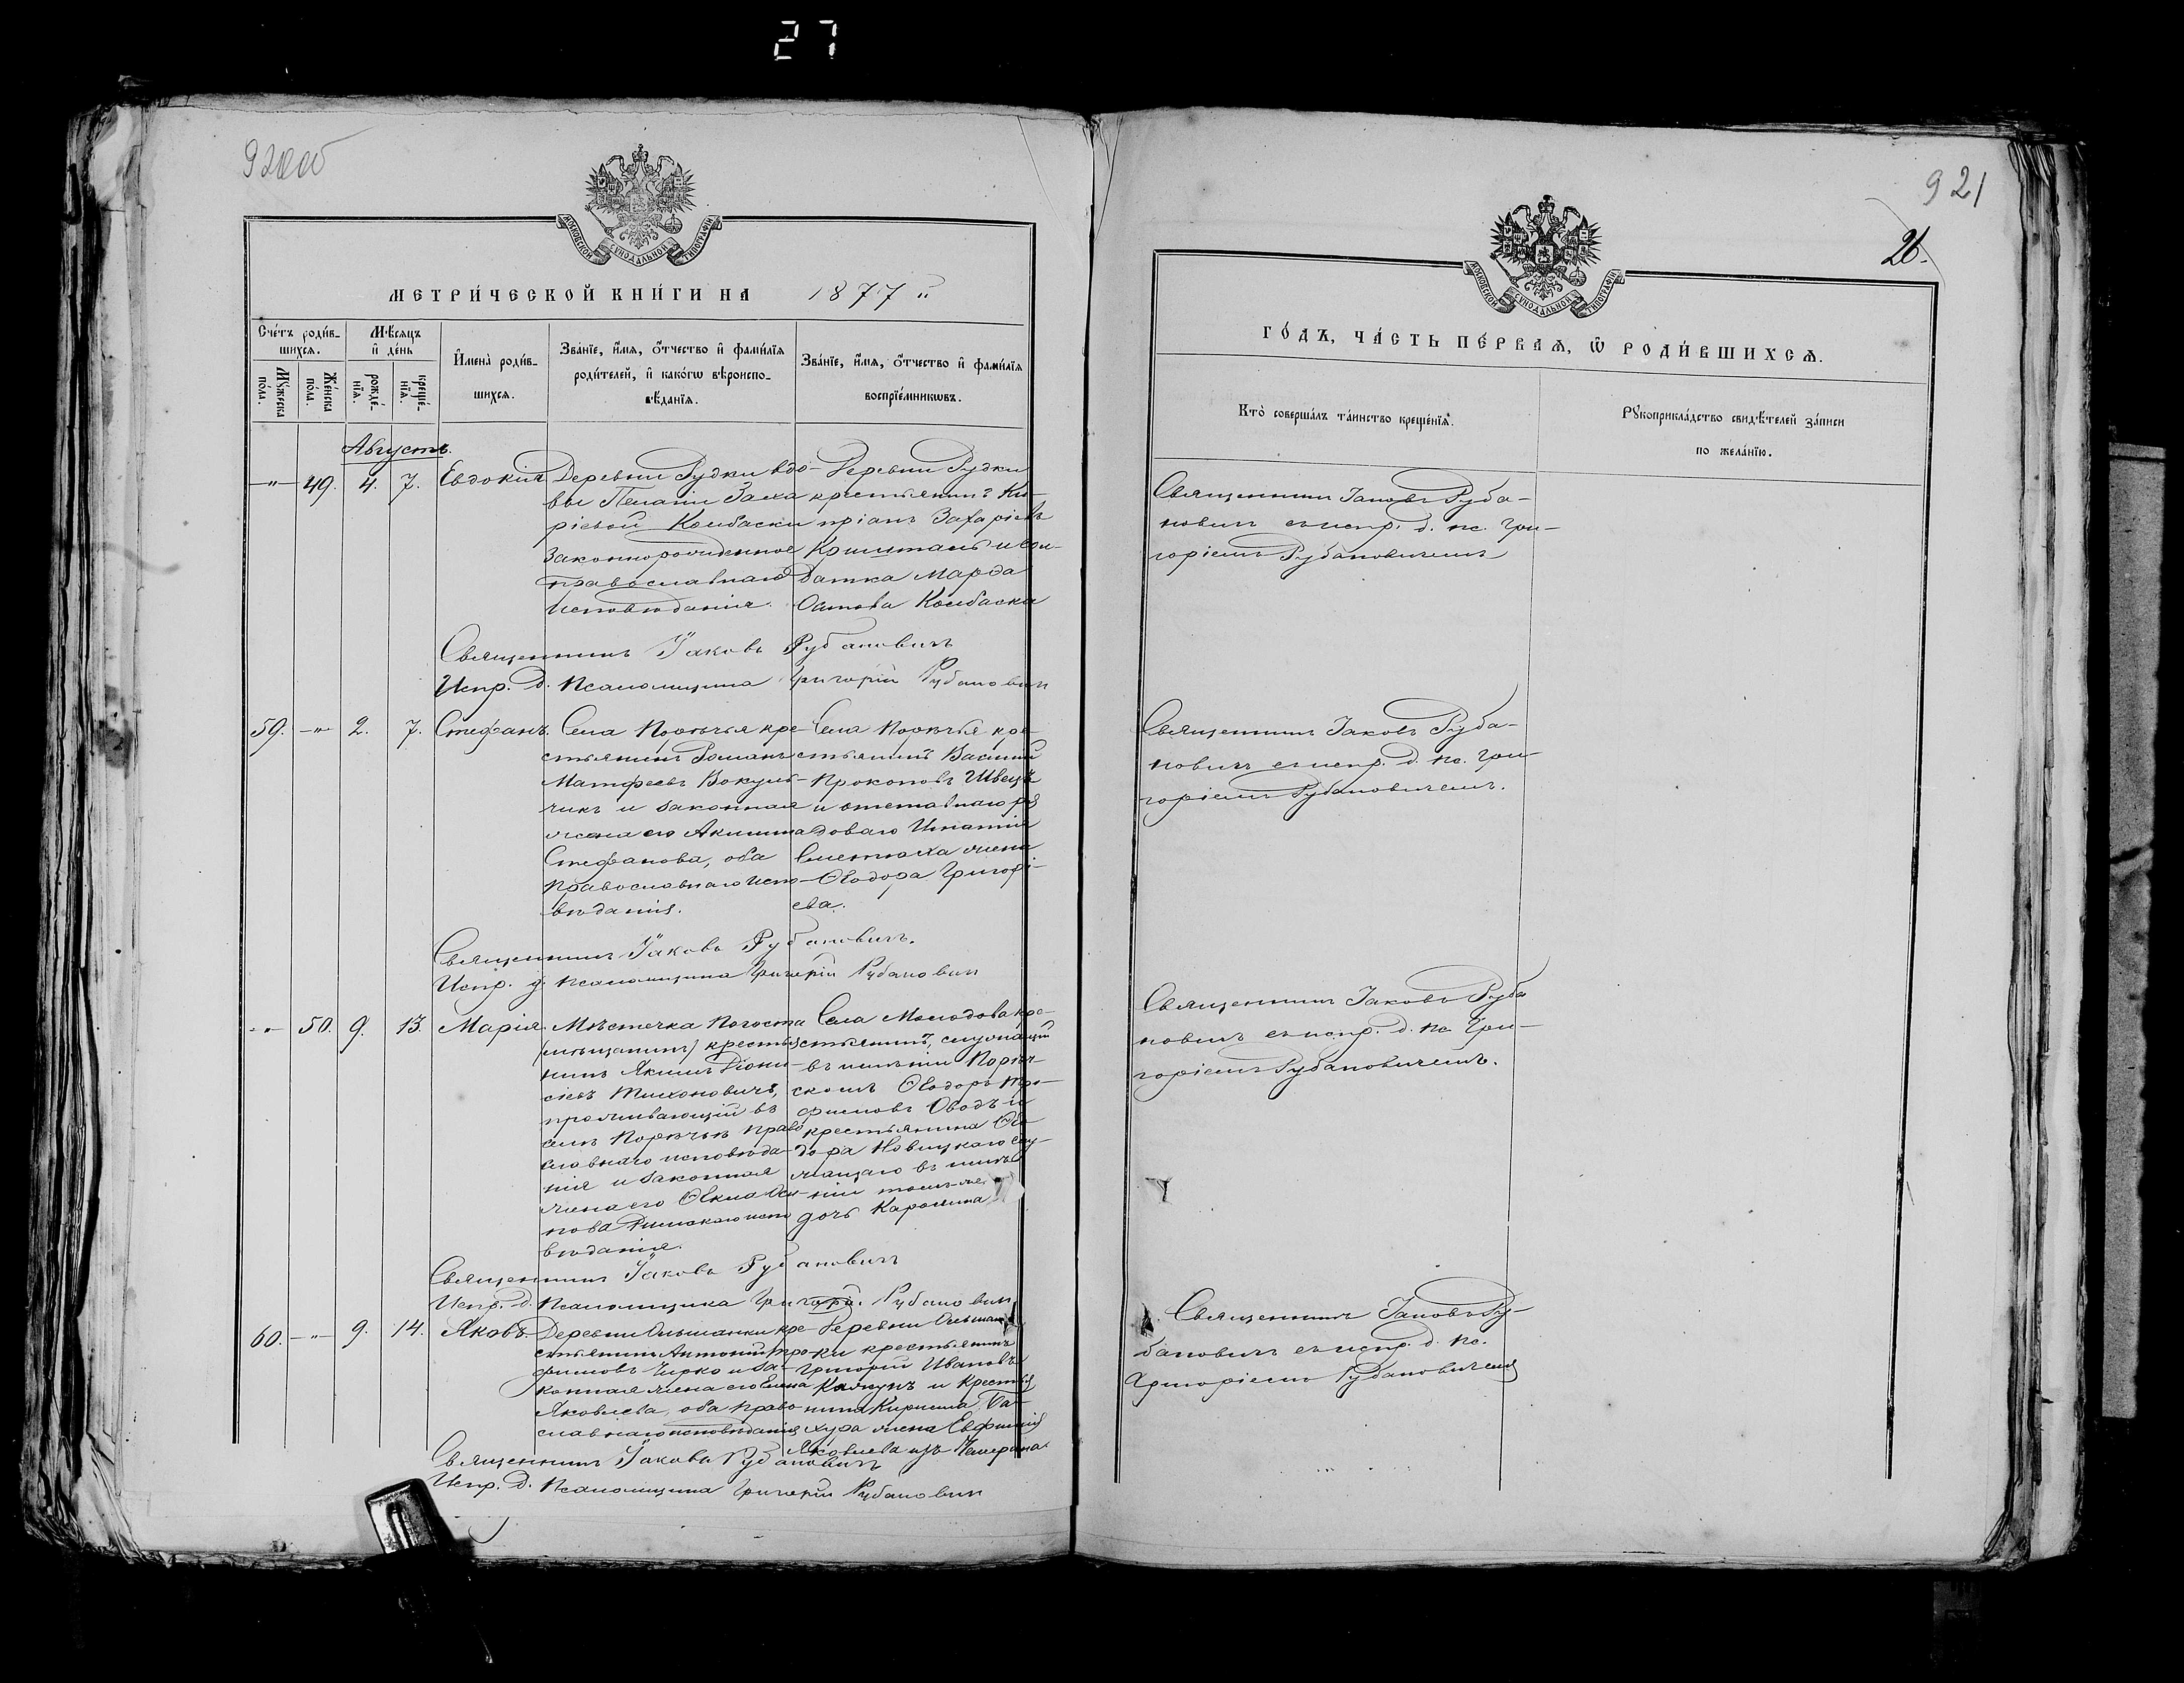 27
920об
МОСКОВСКОЙ СУНОДАЛЬНОЙ ТИПОГРАФІИ
МЕТРИ́ЧЕСКОЙ КНИ́ГИ НА 1877 й
Сче́тъ роди́в-
шихсѧ.
Мѣ́сѧцъ
и҆ де́нь
Мꙋ́жеска
по́ла.
Же́нска
по́ла.
рожде́-
нїѧ.
креще́-
нїѧ.
И҆мена̀ роди́в-
шихсѧ.
Зва́нїе, и҆́мѧ, ѻ҆́тчество и҆ фами́лїѧ
роди́телей, и҆ како́гѡ вѣроиспо-
вѣ́данїѧ.
Зва́нїе, и҆́мѧ, ѻ҆́тчество и҆ фами́лїѧ
воспрїе́мникѡвъ.
Августъ.
-"- 49. 4. 7. Евдокія
Деревни Рудки вдо-
вы Пелагіи Заха
ріевой Колбаски
законнорожденное
православнаго
исповѣданія.
Деревни Рудки
крестьянинъ Ки-
пріанъ Захаріевъ
и сол-
датка Марѳа
Колбаска
Священникъ Іаковъ Рубановичъ
Испр. д. Псаломщика Григорій Рубанович
59. -"- 2. 7. Стефанъ.
Села Порѣчья кре-
стьянинъ Романъ
Матфеевъ Вокуль-
чикъ и законная
жена его Акилина
Стефанова, оба
православнаго испо-
вѣданія.
Села Порѣчья кре-
стьянинъ Василій
Прокоповъ Швецъ
и отставнаго ря
доваго Игнатія
жена
Ѳеодора Григорі-
ева.
Священникъ Іаковъ Рубановичъ.
Испр. д. Псаломщика Григорій Рубанович
-"- 50. 9. 13. Марія.
Мѣстечка Погоста
(мѣщанинъ) крестья
нинъ Якимъ Діони-
сіевъ Тихоновичъ,
проживающій въ
селѣ Порѣчьѣ право
славнаго исповѣда-
нія и законная
жена его Ѳекла Оси-
пова Римскаго испо
вѣданія.
Села Молодова кре-
стьянинъ, служащій
въ имѣніи Порѣч-
скомъ Ѳеодоръ Тро-
фимовъ Оводъ и
крестьянина Ѳео
дора Новицкаго слу-
жащаго въ имѣ
ніи томъ-же
дочь Каролина
Священникъ Іаковъ Рубановичъ
Испр. д. Псаломщика Григорій Рубанович
60. -"- 9. 14. Яковъ.
Деревни Ольшанки кре-
стьянинъ Антоній Тро-
фимовъ Чирко и за-
конная жена его Елена
Яковлева, оба право
славнаго исповѣданія
Деревни Ольшан
ки крестьянинъ
Григорій Ивановъ
и крестья
нина Кирилла Ба-
хура жена Евфимія
Яковлева изъ
Священникъ Іаковъ Рубановичъ
Испр. д. Псаломщика Григорій Рубанович
921
26.
МОСКОВСКОЙ СУНОДАЛЬНОЙ ТИПОГРАФІИ
ГО́ДЪ, ЧА́СТЬ ПЕ́РВАѦ, Ѡ҆ РОДИ́ВШИХСѦ.
Кто̀ соверша́лъ та́инство креще́нїѧ.
Рꙋкоприкла́дство свидѣ́телей за́писи
по жела́нїю.
Священникъ Іаковъ Руба-
новичъ съ испр. д. пс. Гри-
горіемъ Рубановичемъ
Священникъ Іаковъ Руба-
новичъ съ испр. д. пс. Гри-
горіемъ Рубановичемъ.
Священникъ Іаковъ Руба
новичъ съ испр. д. пс. Гри-
горіемъ Рубановичемъ.
Священникъ Іаковъ Ру-
бановичъ съ испр. д. пс.
Григоріемъ Рубановичемъ